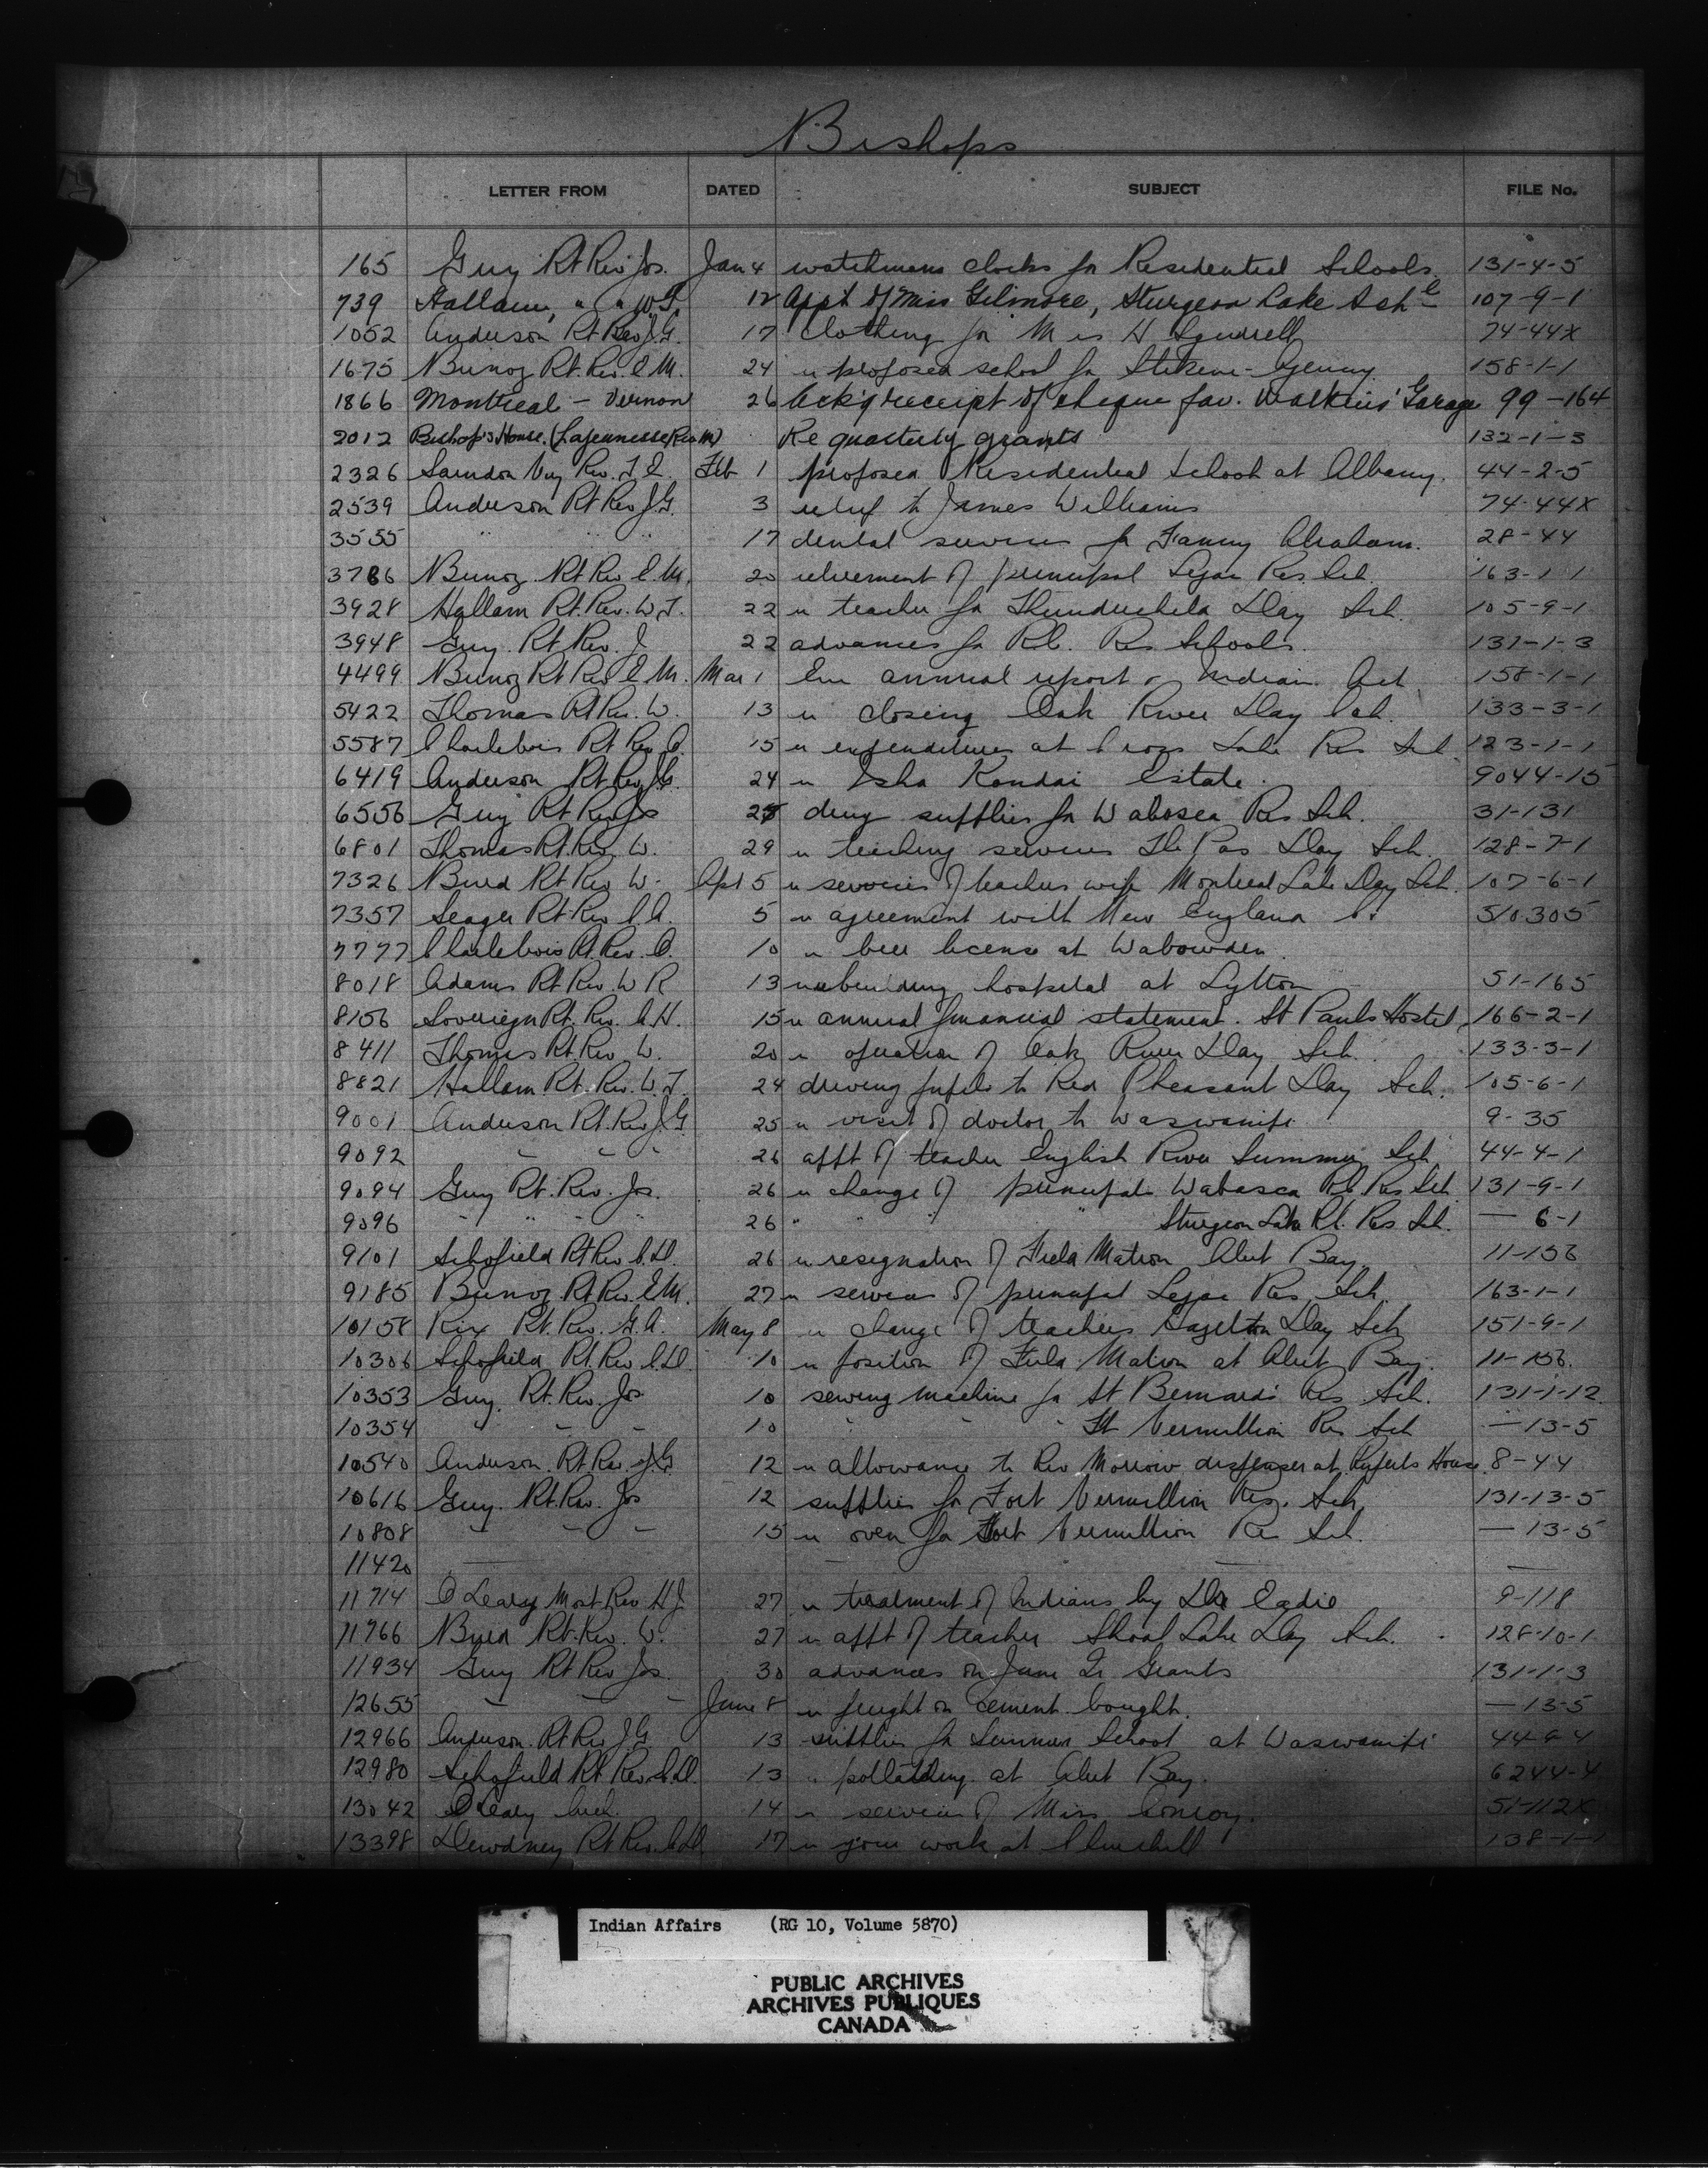 Bishops
LETTER FROM DATED SUBJECT FILE No.
165 Guy Rt Rev Jos. Jan 4 watchmans clocks for Residential Schools. 131-4-5
739 Hallam, " " W.T. 12 Appt of Miss Gilmore, Sturgeon Lake Sch 107-9-1
1052 Anderson Rt Rev J.G. 17 Clothing for Mrs H 74-44X
1675 Bunoz Rt. Rev. E.M. 24 re proposed school for Stikine Agency 158-1-1
1866 Montreal - Vernon 26 Ack'g receipt of cheque fav. Watkins' Garage 99-164
2012 Bishop's House. (Lajeunesse Rev M) Re quarterly grants 132-1-3
2326 Saindon Very Rev. J.E. Feb 1 proposed Residential School at Albany. 44-2-5
2539 Anderson Rt Rev J.G. 3 relief to James Williams 74-44X
3555 " " " 17 dental services for Fanny Abraham. 28-44
3786 Bunoz Rt Rev E.M. 20 retirement of principal Lejac Res. Sch. 163-1-1
3928 Hallam Rt. Rev. W.T. 22 re teacher for Thunderchild Day Sch. 105-9-1
3948 Guy. Rt Rev. J 22 advances for R.C. Res Schools. 131-1-3
4499 Bunoz Rt Rev E.M. Mar 1 annual report & Indian Act 158-1-1
5422 Thomas Rt Rev. W. 13 re closing Oak River Day Sch. 133-3-1
5587 Charlebois Rt Rev O. 15 re expenditures at Cross Lake Res Sch 123-1-1
6419 Anderson Rt Rev J.G. 24 re Isha Kandai Estate. 9044-15
6556 Guy Rt Rev Jos 28 drug supplies for Wabasca Res Sch. 31-131
6801 Thomas Rt. Rev W. 29 re teaching services The Pas Day Sch. 128-7-1
7326 Burd Rt Rev W. Apl 5 re services of teachers wife Montreal Lake Day Sch. 107-6-1
7357 Seager Rt Rev C.A. 5 re agreement with New England Co 510305
7777 Charlebois Rt. Rev. O. 10 re beer license at Wabowden.
8018 Adams Rt Rev. W R 13 re rebuilding hospital at Lytton 51-165
8156 Sovereign Rt. Rev. A.H. 15 re annual financial statement. St Pauls Hostel 166-2-1
8411 Thomas Rt. Rev W. 20 re operation of Oak River Day Sch. 133-3-1
8821 Hallam Rt. Rev. W.T. 24 driving pupils to Red Pheasant Day Sch. 105-6-1
9001 Anderson Rt. Rev J.G 25 re visit of doctor to Waswanipi 9-35
9092 " " " 26 appt of teacher English River Summer Sch 44-4-1
9094 Guy Rt. Rev. Jos. 26 re change of principals Wabasca R.C. Res Sch 131-9-1
9096 " " " " 26 " " " " Sturgeon Lake R.C. Res Sch. — 6-1
9101 Schofield Rt Rev C.D. 26 re resignation of Field Matron Alert Bay 11-156
9185 Bunoz Rt Rev. E.M. 27 re services of principal Lejac Res Sch. 163-1-1
10158 Rix Rt. Rev. G.A. May 8 re change of teachers Hazelton Day Sch 151-9-1
10306 Schofield Rt. Rev C.D. 10 re position of Field Matron at Alert Bay. 11-156.
10353 Guy. Rt. Rev. Jos 10 sewing machine for St Bernards Res Sch. 131-1-12
10354 " " " 10 " " " Ft Vermillion Res Sch — 13-5
10540 Anderson. Rt Rev. J.G 12 re allowance to Rev Morrow dispenser at Ruperts House 8-44
10616 Guy. Rt. Rev. Jos 12 supplies for Fort Vermillion Res. Sch. 131-13-5
10808 " " " 15 re oven for Fort Vermillion Res Sch. — 13-5
11420 — — —
11714 O'Leary Most Rev H.J. 27 re treatment of Indians by Dr Eadie 9-118
11766 Burd Rt. Rev. W. 27 re appt of teacher Shoal Lake Day Sch. 128-10-1
11934 Guy Rt Rev Jos. 30 advances on June Qr Grants 131-1-3
12655 " " " June 8 re freight on cement bought. — 13-5
12966 Anderson. Rt Rev J.G 13 supplies for Summer School at Waswanipi
12980 Schofield Rt Rev. C.D. 13 at Alert Bay. 6244-4
13042 O'Leary 14 re services of Miss Conroy. 51-112X
13398 Dewdney Rt Rev. A.D. 17 re your work at Churchill 138-1-1
Indian Affairs (RG 10, Volume 5870)
PUBLIC ARCHIVES
ARCHIVES PUBLIQUES
CANADA